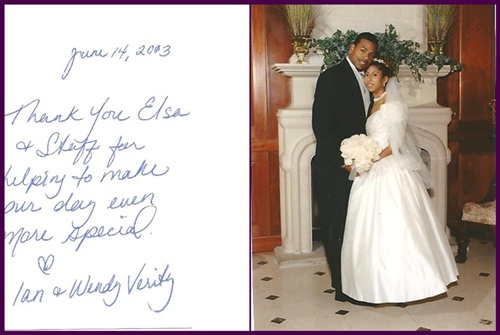 June 14, 2003
Thank You Elsa
& Staff for
helping to make
our day even
more special.
♡
Ian & Wendy Verity